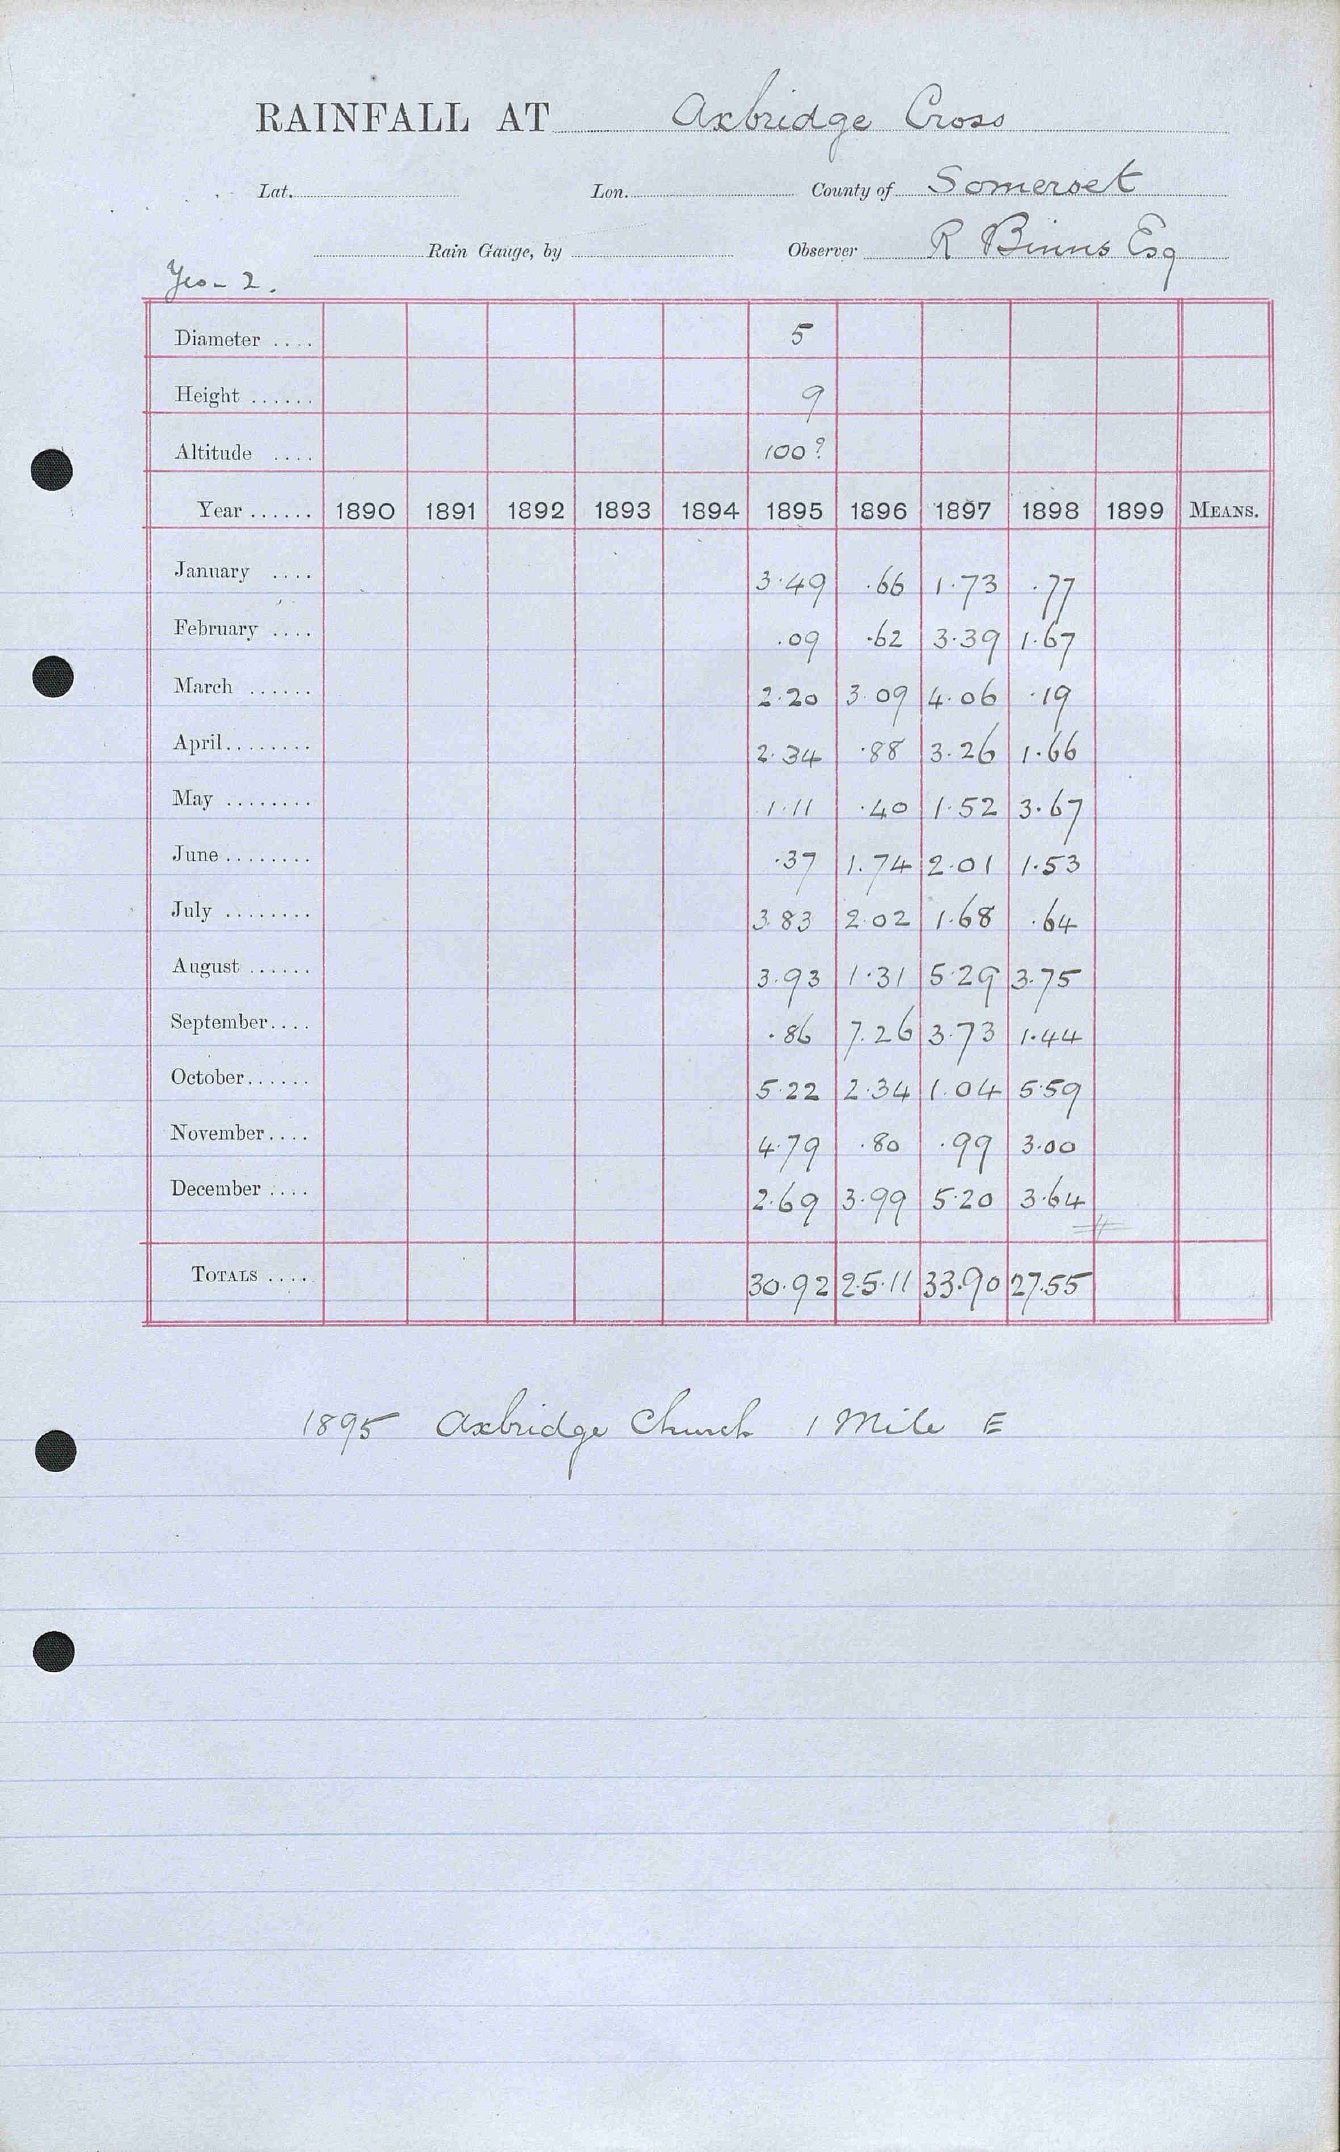 RAINFALL AT Axbridge Cross
Lat. Lon. County of Somerset
Rain Gauge, by Observer R Binns Esq
Yeo - 2.
Diameter .... 5
Height ...... 9
Altitude .... 100?
Year ...... 1890 1891 1892 1893 1894 1895 1896 1897 1898 1899 MEANS.
January .... 3.49 .66 1.73 .77
February .... .09 .62 3.39 1.67
March ...... 2.20 3.09 4.06 .19
April........ 2.34 .88 3.26 1.66
May ........ 1.11 .40 1.52 3.67
June ........ .37 1.74 2.01 1.53
July ........ 3.83 2.02 1.68 .64
August ...... 3.93 1.31 5.29 3.75
September.... .86 7.26 3.73 1.44
October...... 5.22 2.34 1.04 5.59
November.... 4.79 .80 .99 3.00
December .... 2.69 3.99 5.20 3.64
TOTALS .... 30.92 25.11 33.90 27.55
1895 Axbridge Church 1 Mile E